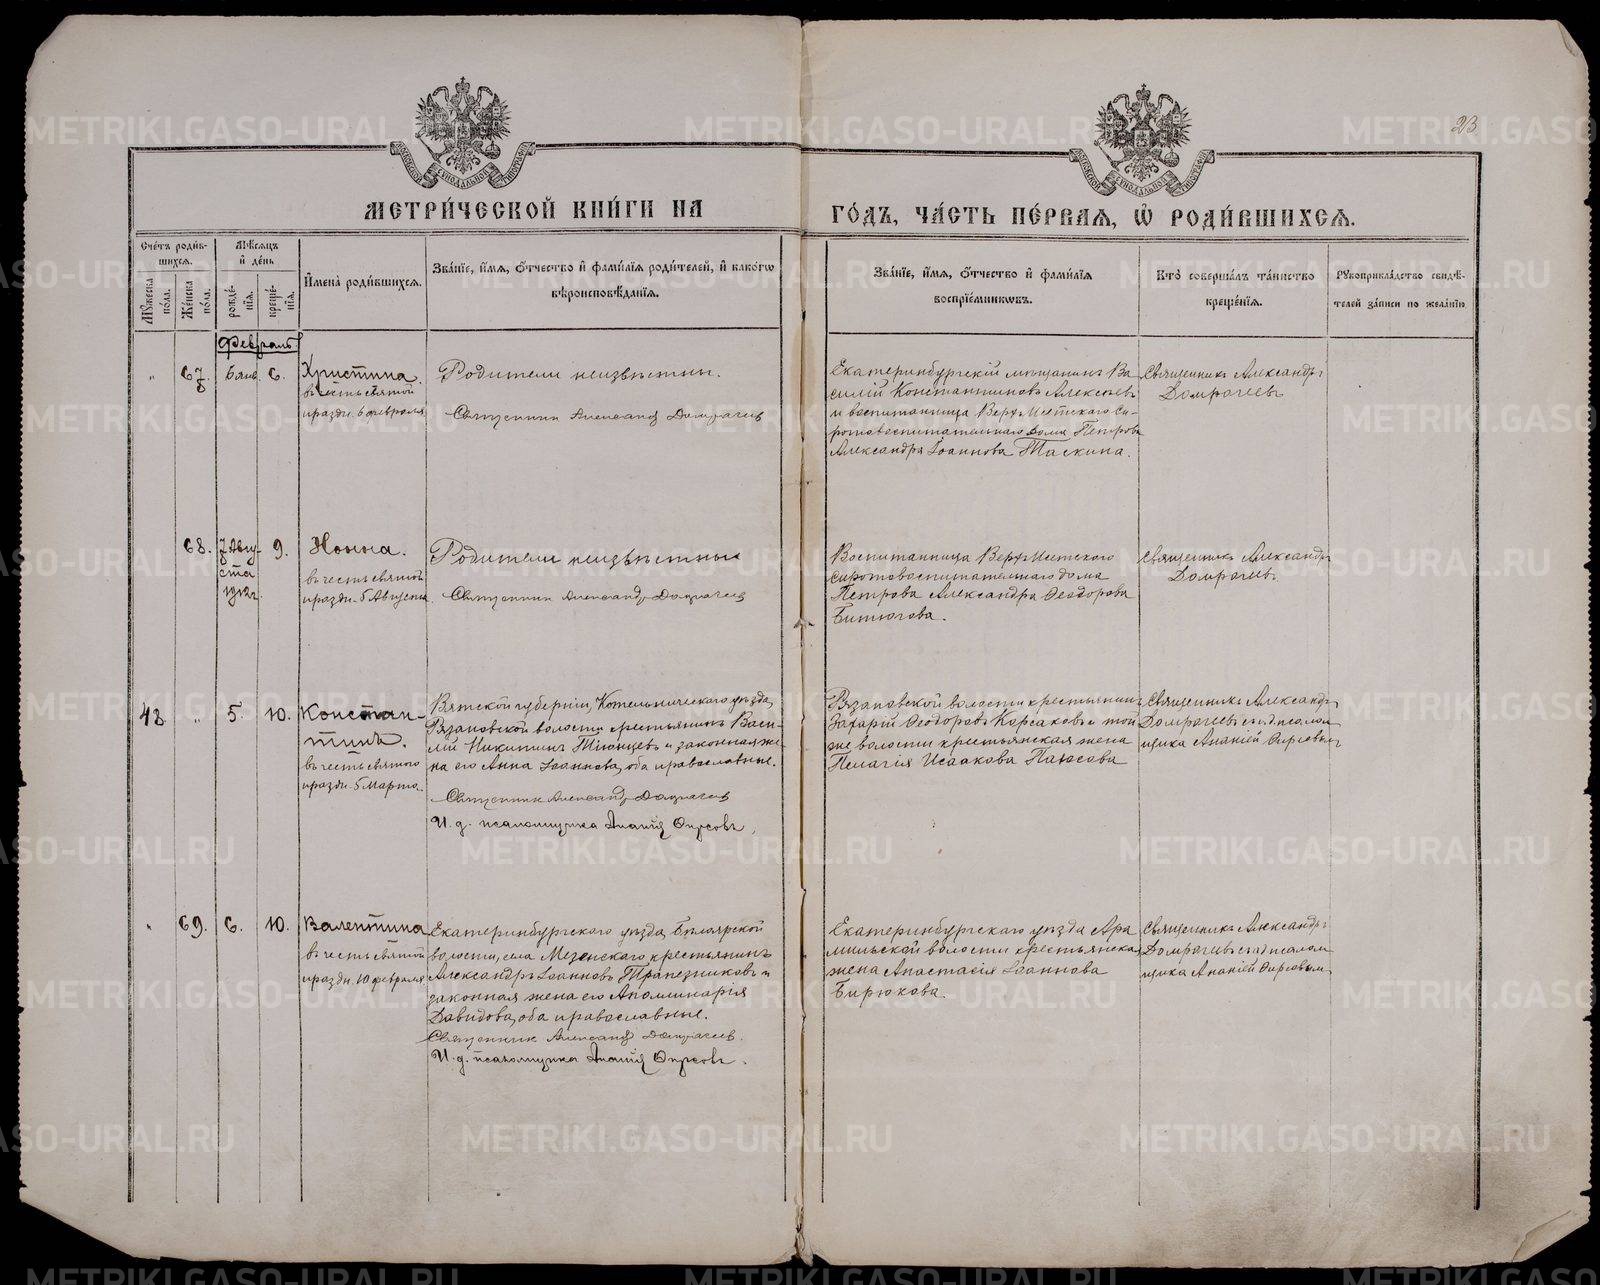 23
МЕТРИ́ЧЕСКОЙ КНИ́ГИ НА
ГО́ДЪ, ЧА́СТЬ ПЕ́РВАЯ, Ѡ҆ РОДИ́ВШИХСЯ.
Сче́тъ роди́вшихся.
Му́жеска по́ла.
Же́нска по́ла.
Мѣ́сяцъ и҆ де́нь
рожде́нїя.
креще́нїя.
И҆мена̀ роди́вшихся.
Зва́нїе, и҆́мя, ѻ҆́тчество и҆ фами́лїя роди́телей, и҆ како́гѡ
вѣроисповѣ́данїя.
Зва́нїе, и҆́мя, ѻ҆́тчество и҆ фами́лїя
воспрїе́мникѡвъ.
Кто̀ соверша́лъ та́инство
креще́нїя.
Рукоприкла́дство свидѣ́-
телей за́писи по жела́нїю
Февраль.
" 67. 6 янв. 6. Христина.
въ честь святой
праздн. 6 февраля
Родители неизвѣстны.
Священник Александр Домрачев
Екатеринбургскій мѣщанинъ Ва-
силій Константиновъ Алексѣевъ
и воспитанница Верх-Исетскаго си-
ротовоспитательнаго дома Петрова
Александра Іоаннова Таскина.
Священникъ Александръ
Домрачевъ
68. 7 Авгу-
ста
9. Нонна.
въ честь святой
праздн. 5 Августа.
Родители неизвѣстны
Священник Александр Домрачев
Воспитанница Верх-Исетскаго
сиротовоспитательнаго дома
Петрова Александра Ѳеодорова
Битюгова.
Священникъ Александръ
Домрачевъ.
48 " 5. 10. Констан-
тинъ.
въ честь святаго
праздн. 5 Марта.
Вятской губерніи, Котельническаго уѣзда,
Рязановской волости крестьянинъ Васи-
лій Никитинъ и законная же-
на его Анна Іоаннова, оба православные.
Священник Александр Домрачев
И. д. псаломщика Ананій Фирсовъ.
Рязановской волости крестьянинъ
Захарій Ѳеодоровъ Корсаковъ и той
же волости крестьянская жена
Пелагія Исаакова
Священникъ Александръ
Домрачевъ съ и. д. псалом-
щика Ананіей Фирсовым
" 69. 6. 10. Валентина
въ честь святой
праздн. 10 февраля
Екатеринбургскаго уѣзда, Бѣлоярской
волости, села Мезенскаго крестьянинъ
Александръ Іоанновъ Трапезниковъ и
законная жена его Аполлинарія
Давидова, оба православные.
Священник Александр Домрачев.
И. д. псаломщика Ананій Фирсовъ.
Екатеринбургскаго уѣзда Ара-
мильской волости крестьянская
жена Анастасія Іоаннова
Бирюкова.
Священникъ Александръ
Домрачевъ съ и. д. псалом-
щика Ананіей Фирсовым
METRIKI.GASO-URAL.RU